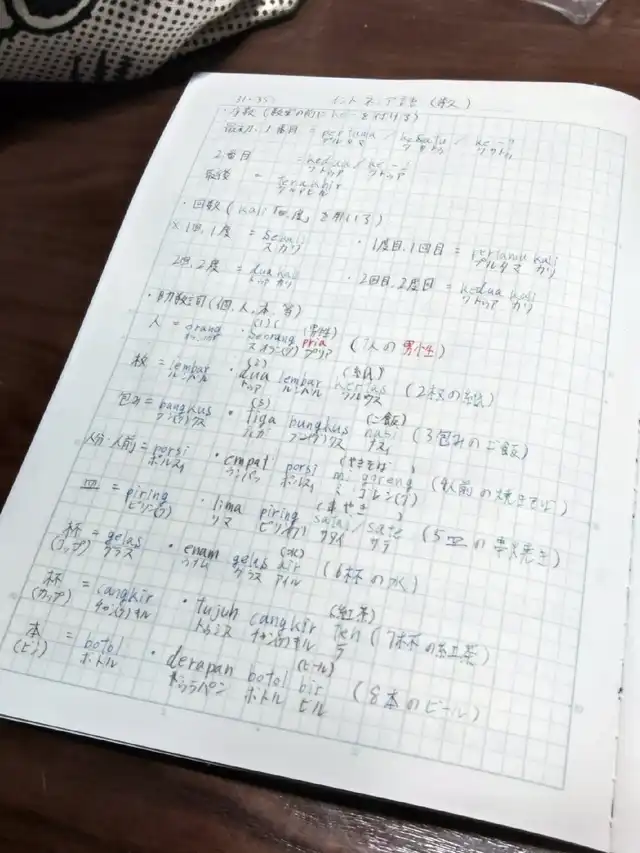 31.35) インドネシア語 (数)
・序数 (数字の前に ke を付ける)
最初、1番目 = pertama / kesatu / ke-1
プルタマ クサトゥ クサトゥ
2番目 = kedua / ke-2
クドゥア
最後 = terakhir
・回数 (kali「回,度」を用いる)
×1回,1度 = sekali ・1度目,1回目 = pertama kali
スカリ プルタマ カリ
2回,2度 = dua kali ・2回目,2度目 = kedua kali
ドゥア カリ クドゥア カリ
・助数詞 (個,人,本 等)
(1) (男性)
人 = orang ・seorang pria (1人の男性)
オラン(グ) スオラン(グ) プリア
(2) (紙)
枚 = lembar ・dua lembar kertas (2枚の紙)
ルンバル ドゥア ルンバル クルタス
(3) (ご飯)
包み = bungkus ・tiga bungkus nasi (3包みのご飯)
ブン(グ)クス ティガ ブン(グ)クス ナスィ
(やきそば)
人分・人前 = porsi ・empat porsi mi goreng (4人前の焼きそば)
ポルスィ ウンパッ ポルスィ ミ ゴレン(グ)
皿 = piring ・lima piring satai / sate (5皿の串焼き)
ピリン(グ) リマ ピリン(グ) サタイ サテ
(水)
杯 = gelas ・enam gelas air (6杯の水)
(コップ) グラス ウナム グラス アイル
(紅茶)
杯 = cangkir ・tujuh cangkir teh (7杯の紅茶)
(カップ) チャン(グ)キル トゥジュ チャン(グ)キル テ
(ビール)
本 = botol ・derapan botol bir (8本のビール)
(ビン) ボトル ドゥラパン ボトル ビル